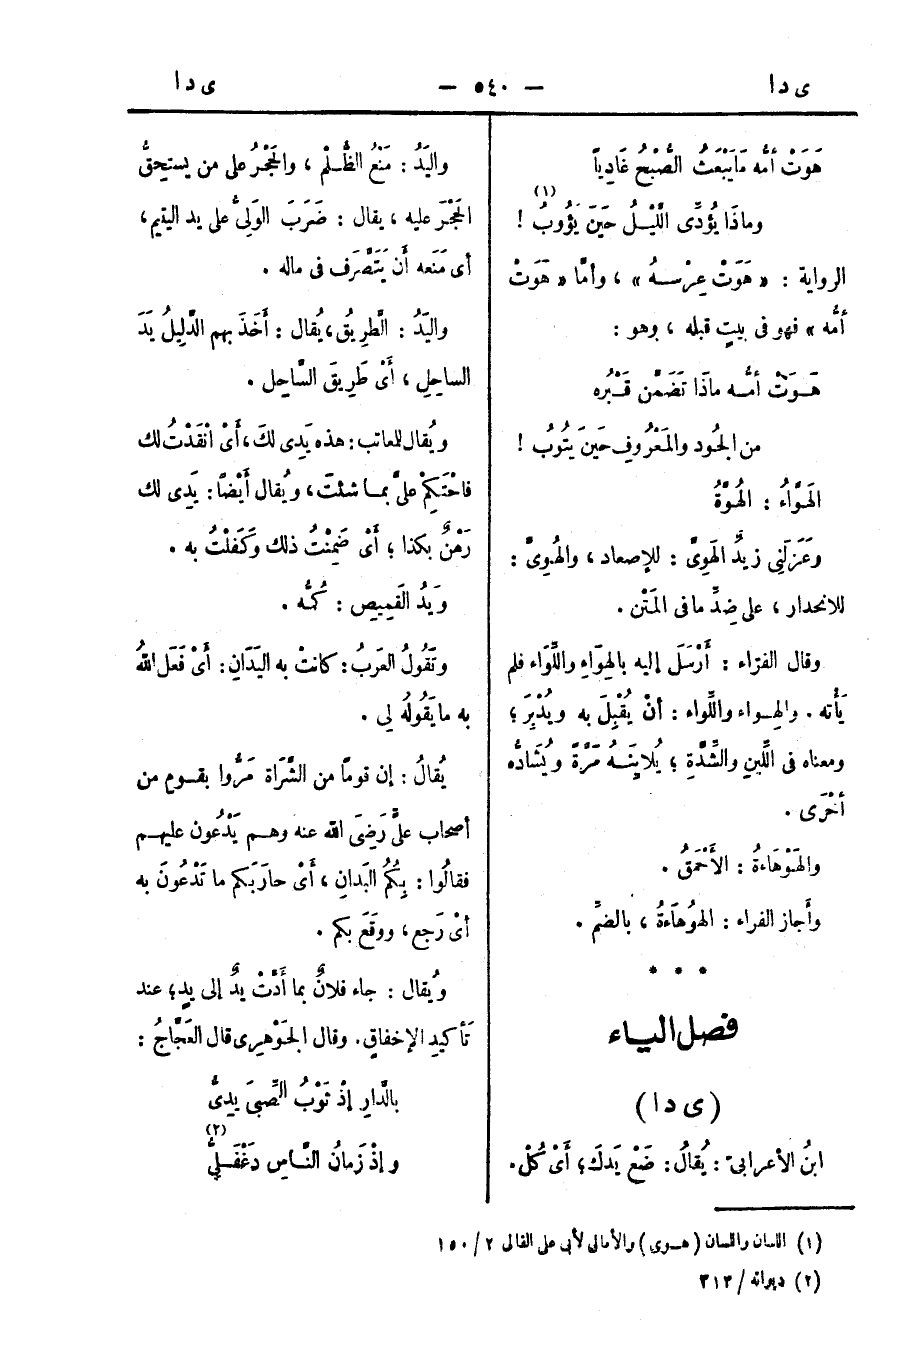 ى د ا — ٥٤٠ — ى د ا
هَوَتْ أُمُّه مَا يَبْعَثُ الصُّبْحُ غَادِياً
وماذَا يُؤَدِّى اللَّيْلُ حَينَ يَؤُوبُ ! (١)
الرواية : « هَوَتْ عِرْسهُ » ، وأمَّا « هَوَتْ
أُمُّه » فهو فى بيتٍ قبله ، وهو :
هَوَتْ أُمُّه ماذَا تَضَمَّن قَبْرُه
من الجُود والمَعْرُوفِ حَينَ يَتُوبُ !
الهَوَّاءُ : الهُوَّةُ
وعَزَلَنِى زيدٌ الهَوِىَّ : للإصعاد ، والهُوِىَّ :
للانحدار ، على ضِدِّ ما فى المَتْن .
وقال الفرّاء : أَرْسَلَ إليه بالهِوَاءِ واللِّوَاء فلم
يَأْته . والهِواء واللِّواء : أنْ يُقْبِلَ به ويُدْبِرَ ؛
ومعناه فى اللِّينِ والشِّدَّةِ ؛ يُلَايِنهُ مَرَّةً ويُشَادُّه
أُخْرَى .
والهَوْهَاءَةُ : الأَحْمَقُ .
وأَجاز الفراء : الهوُهَاءَةُ ، بالضمِّ .
* * *
فصل الياء
(ى د ا)
ابنُ الأعرابىّ : يُقالُ : ضَعْ يَدَكَ ؛ أَىْ كُلْ .
واليَدُ : مَنْعُ الظُّلْم ، والحَجْرُ على من يستحِقُّ
الحَجْرَ عليه ، يقال : ضَرَبَ الوَلِىُّ على يد اليتيم ،
أى مَنَعه أن يَتَصَّرَف فى ماله .
واليَدُ : الطَّرِيقُ ، يُقال : أَخَذَ بهم الدَّلِيلُ يَدَ
الساحِلِ ، أَىْ طَرِيقَ السَّاحِل .
ويُقال للمعاتب : هذه يَدِى لكَ ، أَىْ انْقَدْتُ لك
فاحْتَكِمْ علىَّ بما شئتَ ، ويُقال أَيْضًا : يَدِى لك
رَهْنٌ بكذا ؛ أَىْ ضَمِنْتُ ذلك وكَفَلْتُ به .
ويَدُ القَمِيص : كُمُّه .
وتَقُولُ العَرَبُ : كانتْ به اليَدَانِ : أَىْ فَعَل اللهُ
به ما يَقُولُه لِى .
يُقالُ : إن قومًا من الشُّرَاة مَرُّوا بقوم من
أصحاب علىٍّ رَضِىَ الله عنه وهم يَدْعُون عليهم
فقالُوا : بِكُمُ اليَدانِ ، أَىْ حارَبَكم ما تَدْعُونَ به
أىْ رَجع ، ووقَعَ بكم .
ويُقال : جاء فلانٌ بما أَدَّتْ يدٌ إلى يدٍ ؛ عند
تَأكيدِ الإخفاقِ . وقال الجَوْهرِى قال العَجَّاجُ :
بالدَّارِ إذْ ثَوْبُ الصِّبىَ يدِىُّ
وإذْ زَمانُ النَّاسِ دَغْفَلِىُّ (٢)
(١) اللسان واللسان (هوى) والأمالى لأبى على القالى ٢/١٥٠
(٢) ديوانه / ٣١٣